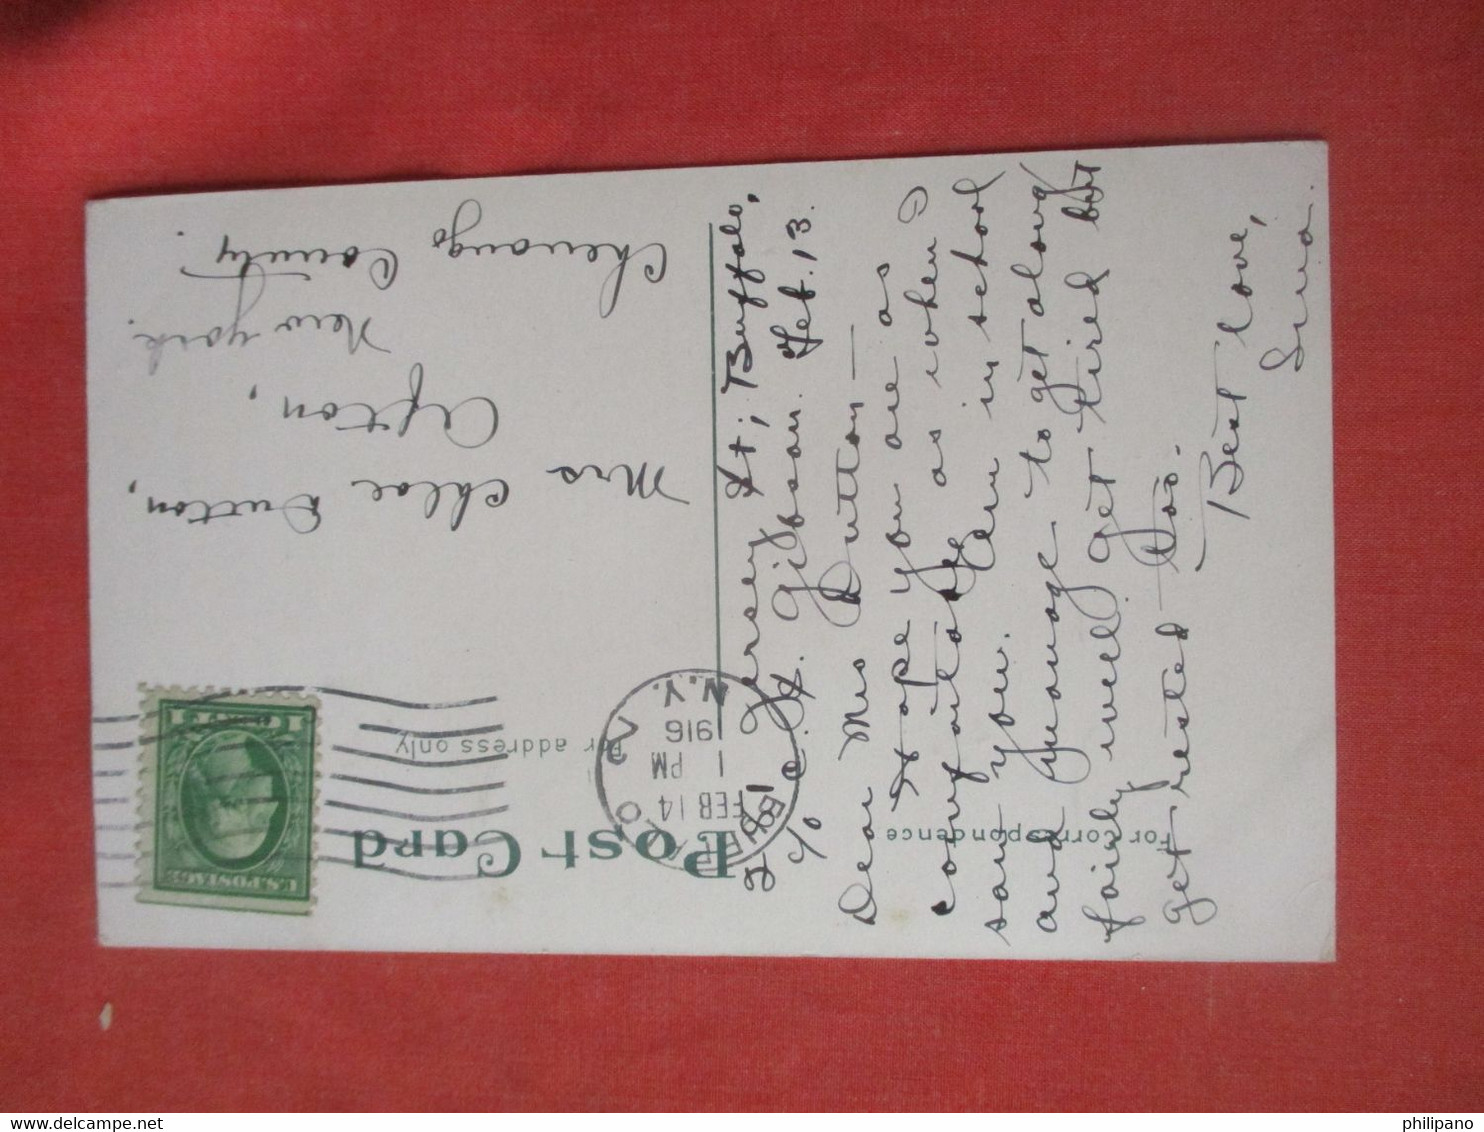 Post Card
For correspondence
For address only
U.S. POSTAGE
1 CENT 1
FEB 14
1 PM
1916
N.Y.
Jersey St; Buffalo,
c/o H. Gibson. Feb. 13.
Dear Mrs Dutton —
Hope you are as
comfortable as when I
saw you. Am in school
and manage to get along
fairly well get tired but
get rested too.
Best love,
Mrs Chloe Dutton,
Afton,
New York.
Chenango
County.
www.delcampe.net
philipano